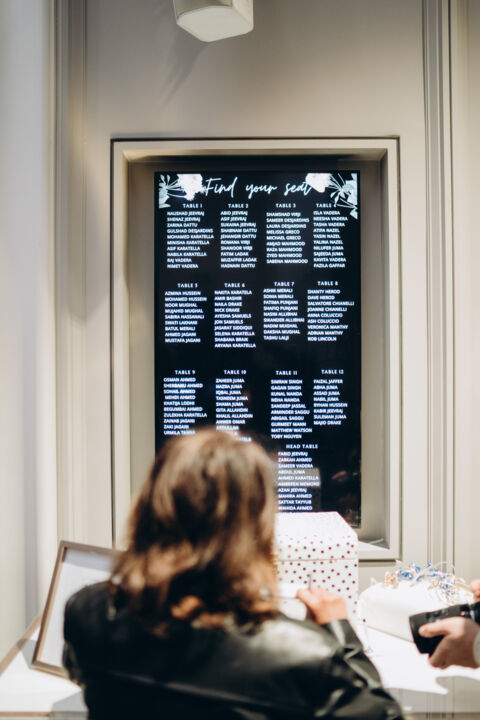 Find your seat
TABLE 1
NAUSHAD JEEVRAJ
SHENAZ JEEVRAJ
ZARINA DATTU
GULSHAD DESJARDINS
MOHAMED KARATELLA
MINISHA KARATELLA
ASIF KARATELLA
NABILA KARATELLA
RAJ VADERA
NIMET VADERA
TABLE 2
ABID JEEVRAJ
ASIF JEEVRAJ
SUKAINA JEEVRAJ
SHABNAM DATTU
JEHANGIR DATTU
ROMANA VIRJI
SHANOOR VIRJI
FATIM LADAK
MUZAFFER LADAK
HASNAIN DATTU
TABLE 3
SHAMSHAD VIRJI
SAMEER DESJARDINS
LAURA DESJARDINS
MELISSA GRECO
MICHAEL GRECO
AMJAD MAHMOOD
RAZA MAHMOOD
ZYED MAHMOOD
SABENA MAHMOOD
TABLE 4
ISLA VADERA
NEESHA VADERA
TASHA VADERA
ATIFA NAZEL
YASIN NAZEL
YALINA NAZEL
NILUFER JUMA
SAJEEDA JUMA
KAVITA VADERA
FAZILA GAFFAR
TABLE 5
AZMINA HUSSEIN
MOHAMED HUSSEIN
NOOR MUGHAL
MUJAHID MUGHAL
SABIRA HASSANALI
SWATI LAKHANI
BATUL MERALI
AHMED JAGANI
MUSTAFA JAGANI
TABLE 6
NAKITA KARATELA
AMIR BASHIR
NAILA DRAKE
NICK DRAKE
AYEESHA SAMUELS
JON SAMUELS
JASARAT SIDDIQUI
SELENA KARATELLA
SHABANA BRAIK
ARYANA KARATELLA
TABLE 7
ASHIK MERALI
SONIA MERALI
FATIMA PUNJANI
SHAFIQ PUNJANI
NASIM ALLIBHAI
SIKANDER ALLIBHAI
NADIM MUGHAL
DAKSHA MUGHAL
TASHU LALJI
TABLE 8
SHANTY HEROD
DAVE HEROD
SALVATORE CHIANELLI
JOANNE CHIANELLI
ANNA COLUCCIO
ASH COLUCCIO
VERONICA MANTHY
ADRIAN MANTHY
ROB LINCOLN
TABLE 9
OSMAN AHMED
SHERBANU AHMED
SOHAIL AHMED
MEHEK AHMED
KHATIJA LODHI
BEGUMBAI AHMED
ZULEKHA KARATELLA
ZAINAB JAGANI
ZAKI JAGANI
URMILA
TABLE 10
ZAHEER JUMA
NAZRA JUMA
IQBAL JUMA
TASNEEM JUMA
SHAMA JUMA
GITA ALLAHDIN
MALIL ALLAHDIN
AHMER OMAR
ABDULLAH
TABLE 11
SIMRAN SINGH
GAGAN SINGH
KUNAL NANDA
NEHA NANDA
SANDEEP JASSAL
ARMINDER SAGGU
ABIGAIL SAGGU
GURMEET MANN
MATTHEW WATSON
TOBY NGUYEN
TABLE 12
FAIZAL JAFFER
ABHA JUMA
ASSAD JUMA
NABIL JUMA
EYHAN HUSSEIN
KABIR JEEVRAJ
SULEMAN JUMA
MAJID DRAKE
HEAD TABLE
FARID JEEVRAJ
ZARRAH AHMED
SAMEER VADERA
ABDUL JUMA
AHMED KARATELLA
AMBREEN MEMORD
AZAN JEEVRAJ
MAHIRA AHMED
SATTAR TAYYUB
AHMED